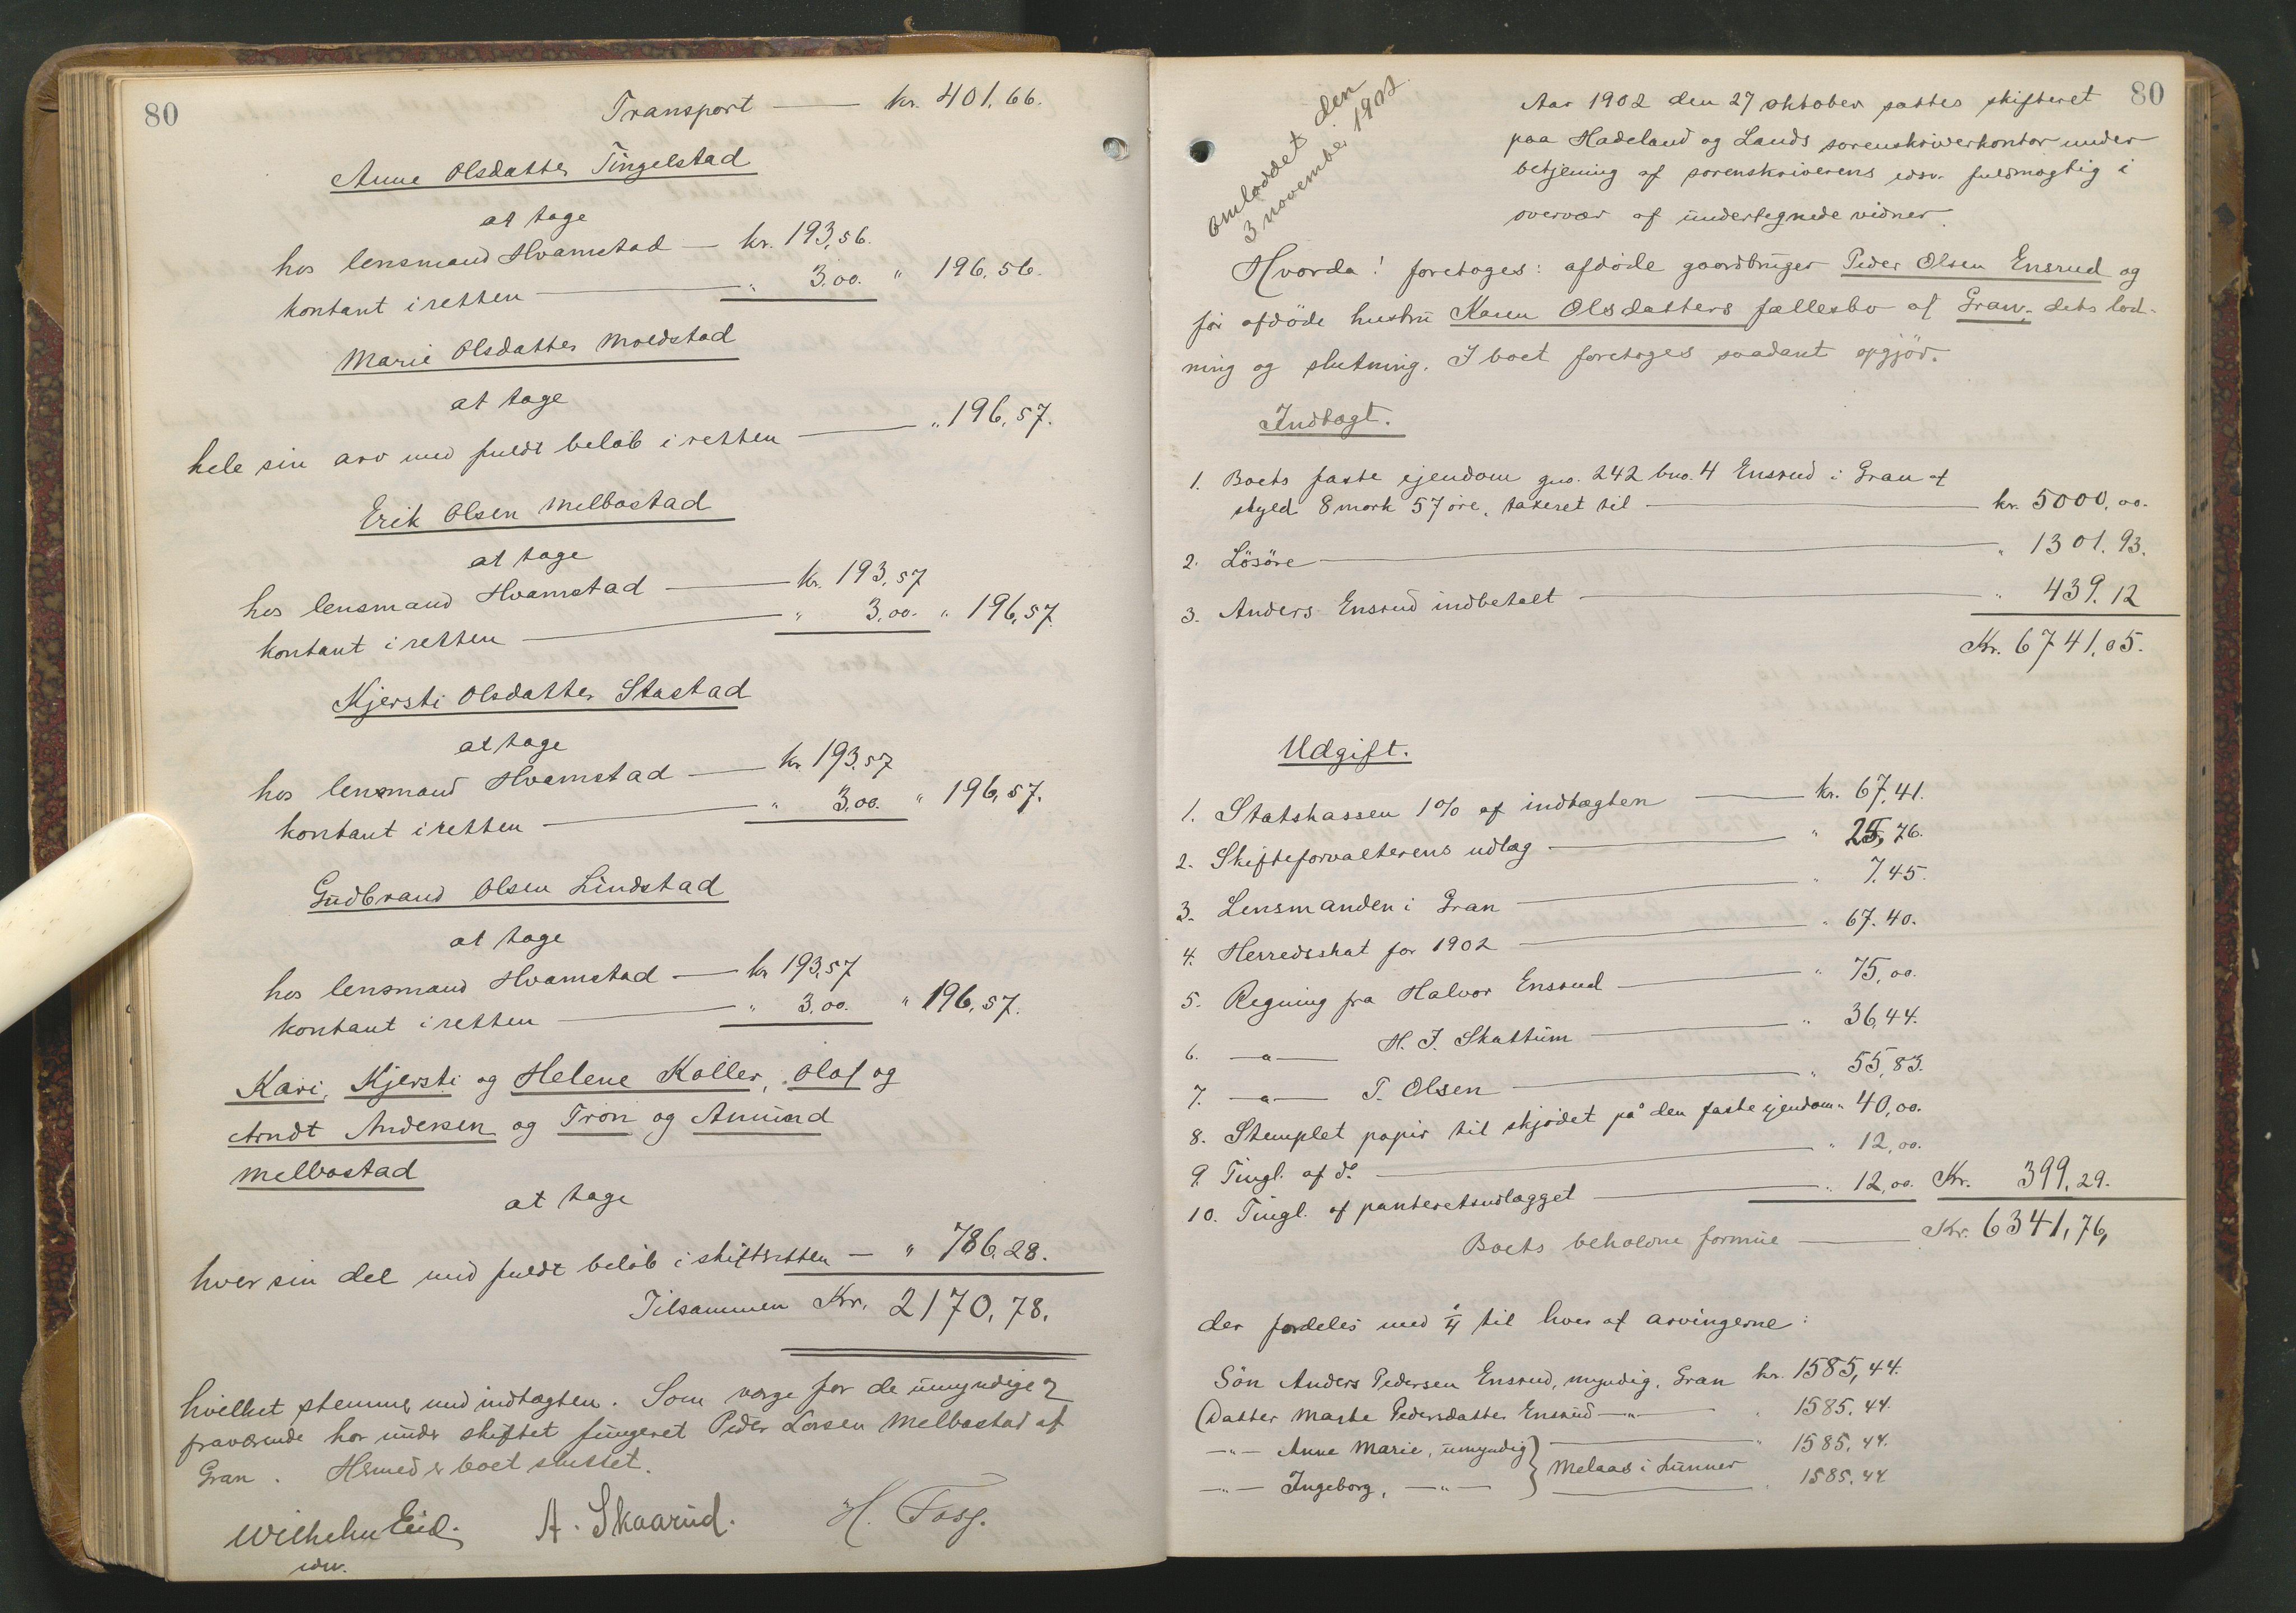 80
Transport — kr. 401,66.
Anne Olsdatter Tingelstad
at tage
hos lensmand Hvamstad — kr. 193,56.
kontant i retten — " 3,00. " 196,56.
Marie Olsdatter Moldstad
at tage
hele sin arv med fuldt beløb i retten — " 196,57.
Erik Olsen Melbostad
at tage
hos lensmand Hvamstad — kr. 193,57
kontant i retten — " 3,00. " 196,57.
Kjersti Olsdatter Stastad
at tage
hos lensmand Hvamstad — kr 193,57
kontant i retten — " 3,00. " 196,57.
Gudbrand Olsen Lindstad
at tage
hos lensmand Hvamstad — kr 193,57
kontant i retten — " 3,00. " 196,57.
Kari, Kjersti og Helene Koller, Olaf og
Arndt Andersen og Tron og Amund
Melbostad
at tage
hver sin del med fuldt beløb i skifteretten — " 786,28.
Tilsammen Kr. 2170,78.
hvilket stemmer med indtægten. Som verge for de umyndige og
fraværende har under skiftet fungeret Peder Larsen Melbostad af
Gran. Hermed er boet sluttet.
Wilhelm Eid. A. Skaarud. H. Foss.
edsv.
80
Omloddet den
3 november 1902.
Aar 1902 den 27 oktober sattes skifteret
paa Hadeland og Lands sorenskriverkontor under
betjening af sorenskriverens edsv. fuldmægtig i
overvær af undertegnede vidner.
Hvorda! foretoges: afdøde gaardbruger Peder Olsen Ensrud og
før afdøde hustru Karen Olsdatters fællesbo af Gran, dets lod-
ning og slutning. I boet foretoges saadant opgjør.
Indtægt.
1. Boets faste ejendom gno. 242 bno. 4 Ensrud i Gran af
skyld 8 mark 57 øre, taxeret til — kr. 5000,00.
2. Løsøre — " 1301.93.
3. Anders Ensrud indbetalt — " 439.12
Kr. 6741,05.
Udgift.
1. Statskassen 1% af indtægten — kr. 67,41.
2. Skifteforvalterens udlæg — " 25,76.
3. Lensmanden i Gran — " 7,45.
4. Herredsskat for 1902 — " 67.40.
5. Regning fra Halvor Ensrud — " 75,00.
6. —"— H. J. Skattum — " 36,44.
7. —"— T. Olsen — " 55,83.
8. Stemplet papir til skjødet på den faste ejendom " 40,00.
9. Tingl. af do. — " 12,00.
10. Tingl. af panteretsudlægget — " 12,00. Kr. 399,29.
Boets beholdne formue — Kr. 6341,76,
der fordeles med 1/4 til hver af arvingerne:
Søn Anders Pedersen Ensrud, myndig, Gran kr. 1585,44.
Datter Marte Pedersdatter Ensrud —"— " 1585,44.
—"— Anne Marie, umyndig } Melaas i Lunner " 1585,44.
—"— Ingeborg, —"— " 1585,44